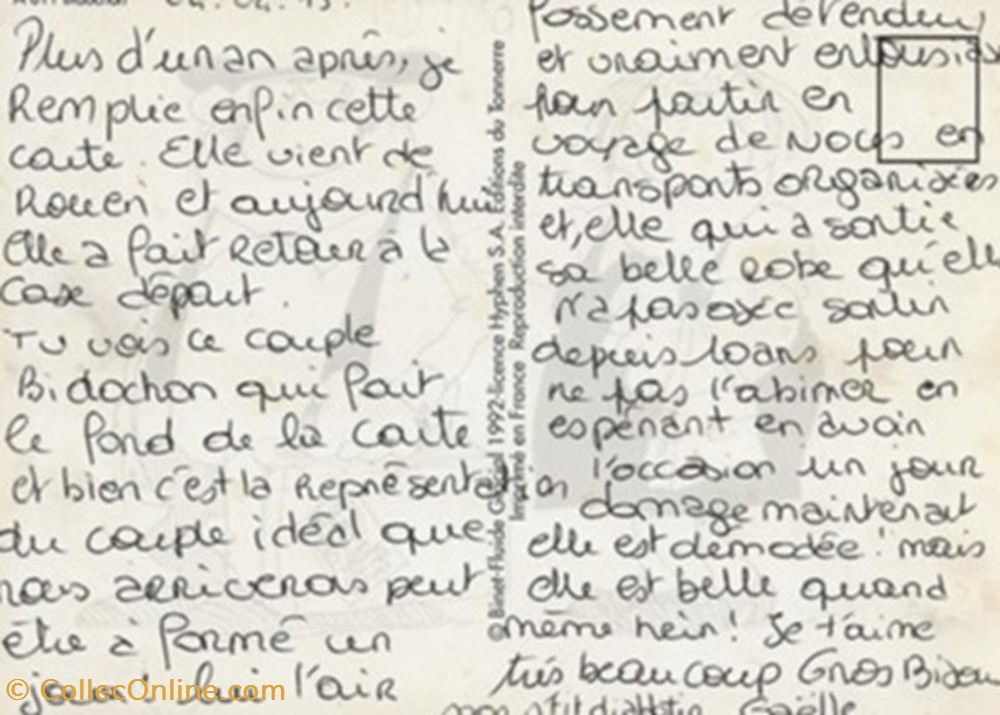 04.04.95.
Plus d'un an après, je
Remplie enfin cette
carte. Elle vient de
Rouen et aujourd'hui
Elle a fait Retour à la
Case départ.
Tu vois ce couple
Bidochon qui fait
le fond de la carte
et bien c'est la Représentation
du couple idéal que
nous arriverons peut
être à formé un
jour: lui l'air
© CollecOnline.com
©Binet-Fluide Glacial 1992-licence Hyphen S.A. Éditions du Tonnerre
Imprimé en France Reproduction interdite
détendu,
et vraiment
pour partir en
voyage de Noces en
transports organisées
et, elle qui a sortie
sa belle robe qu'elle
n'a pas osée sortir
depuis 10ans pour
ne pas l'abimer en
espérant en avoir
l'occasion un jour
domage maintenant
elle est démodée! mais
elle est belle quand
même hein! Je t'aime
très beaucoup Gros Bisou
mon Gaëlle